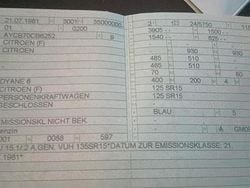 21.07.1981 3001 35000000
01 0200
AYCB70CB6252 9
CITROEN (F)
CITROEN
DYANE 6
CITROEN (F)
PERSONENKRAFTWAGEN
GESCHLOSSEN
EMISSIONSKL NICHT BEK.
enzin
001 0058 597
2 24/5750
3905 1500
1540
930 930
485 485
510 510
70 60
400 200 4
125 SR15
125 SR15
BLAU 5
/ 15.1/2 A.GEN. VUH 135SR15*DATUM ZUR EMISSIONSKLASSE: 21.
.1981*